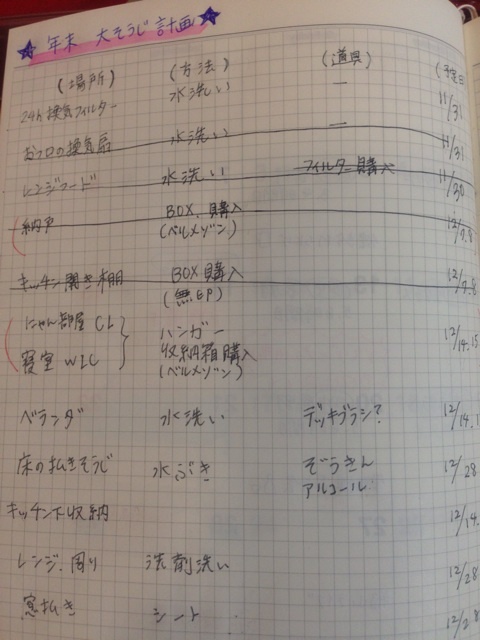 年末 大そうじ計画
(場所) (方法) (道具) (予定日)
24h換気フィルター 水洗い — 11/31
おフロの換気扇 水洗い — 11/31
レンジフード 水洗い フィルター購入 11/30
納戸 BOX購入 12/7.8
(ベルメゾン)
キッチン開き棚 BOX購入 12/7.8
(無印)
にゃん部屋CL ハンガー 12/14.15
寝室WIC 収納箱購入
(ベルメゾン)
ベランダ 水洗い デッキブラシ? 12/14.1
床のふきそうじ 水ぶき ぞうきん 12/28
アルコール
キッチン下収納 12/14.
レンジ.周り 洗剤洗い 12/28
窓ふき シート 12/28